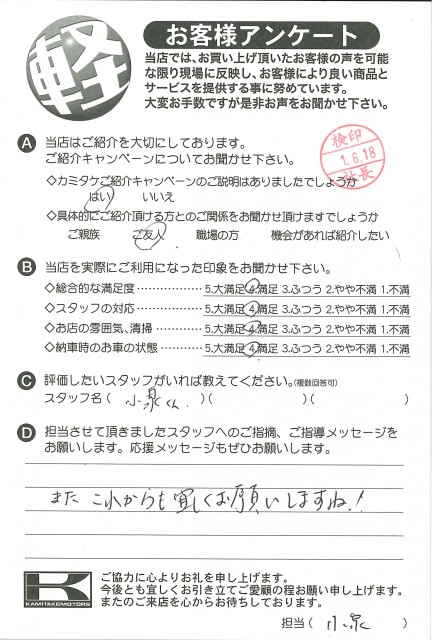 軽
お客様アンケート
当店では、お買い上げ頂いたお客様の声を可能
な限り現場に反映し、お客様により良い商品と
サービスを提供する事に努めています。
大変お手数ですが是非お声をお聞かせ下さい。
A 当店はご紹介を大切にしております。
ご紹介キャンペーンについてお聞かせ下さい。
検印
1.6.18
社長
◇カミタケご紹介キャンペーンのご説明はありましたでしょうか
はい いいえ
◇具体的にご紹介頂ける方とのご関係をお聞かせ頂けますでしょうか
ご親族 ご友人 職場の方 機会があれば紹介したい
B 当店を実際にご利用になった印象をお聞かせ下さい。
◇総合的な満足度 ………………… 5.大満足 4.満足 3.ふつう 2.やや不満 1.不満
◇スタッフの対応 ………………… 5.大満足 4.満足 3.ふつう 2.やや不満 1.不満
◇お店の雰囲気、清掃 …………… 5.大満足 4.満足 3.ふつう 2.やや不満 1.不満
◇納車時のお車の状態 …………… 5.大満足 4.満足 3.ふつう 2.やや不満 1.不満
C 評価したいスタッフがいれば教えてください。(複数回答可)
スタッフ名 ( 小泉くん )( )( )
D 担当させて頂きましたスタッフへのご指摘、ご指導メッセージを
お願いします。応援メッセージもぜひお願いします。
また これからも宜しくお願いしますね!
K
KAMITAKEMOTORS
ご協力に心よりお礼を申し上げます。
今後とも宜しくお引き立てご愛顧の程お願い申し上げます。
またのご来店を心からお待ちしております。
担当 ( 小泉 )